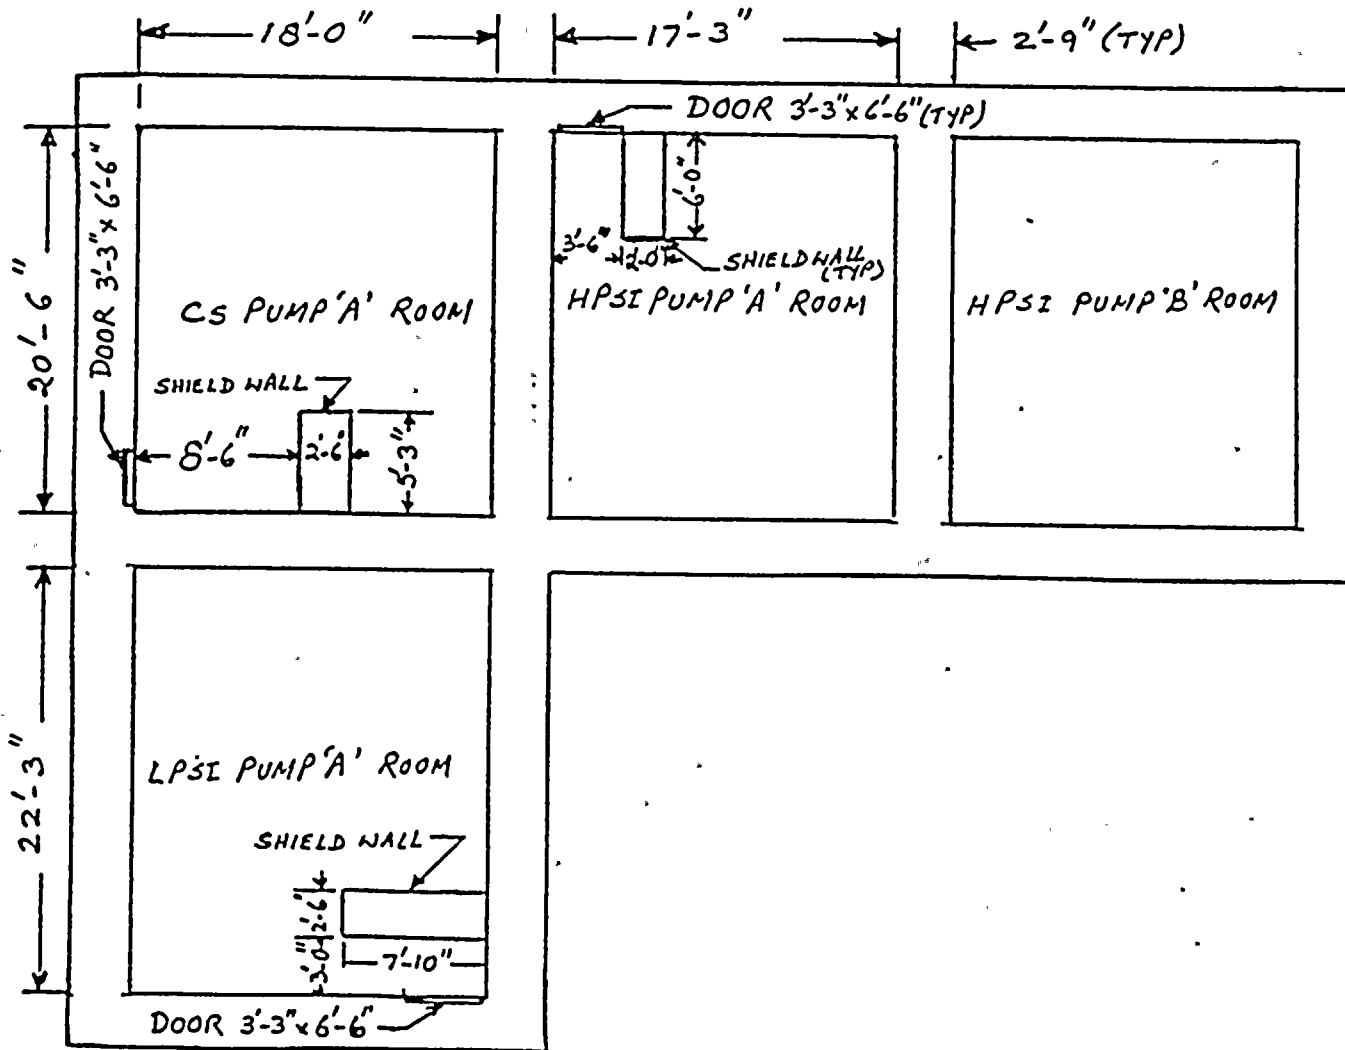 18'-0"
17'-3"
2'-9" (TYP)
DOOR 3'-3" x 6'-6" (TYP)
DOOR 3'-3" x 6'-6"
20'-6"
6'-0"
3'-6"
2'-0"
SHIELD WALL
(TYP)
CS PUMP 'A' ROOM
HPSI PUMP 'A' ROOM
HPSI PUMP 'B' ROOM
SHIELD WALL
8'-6"
2'-6"
5'-3"
22'-3"
LPSI PUMP 'A' ROOM
SHIELD WALL
2'-6"
3'-0"
7'-10"
DOOR 3'-3" x 6'-6"